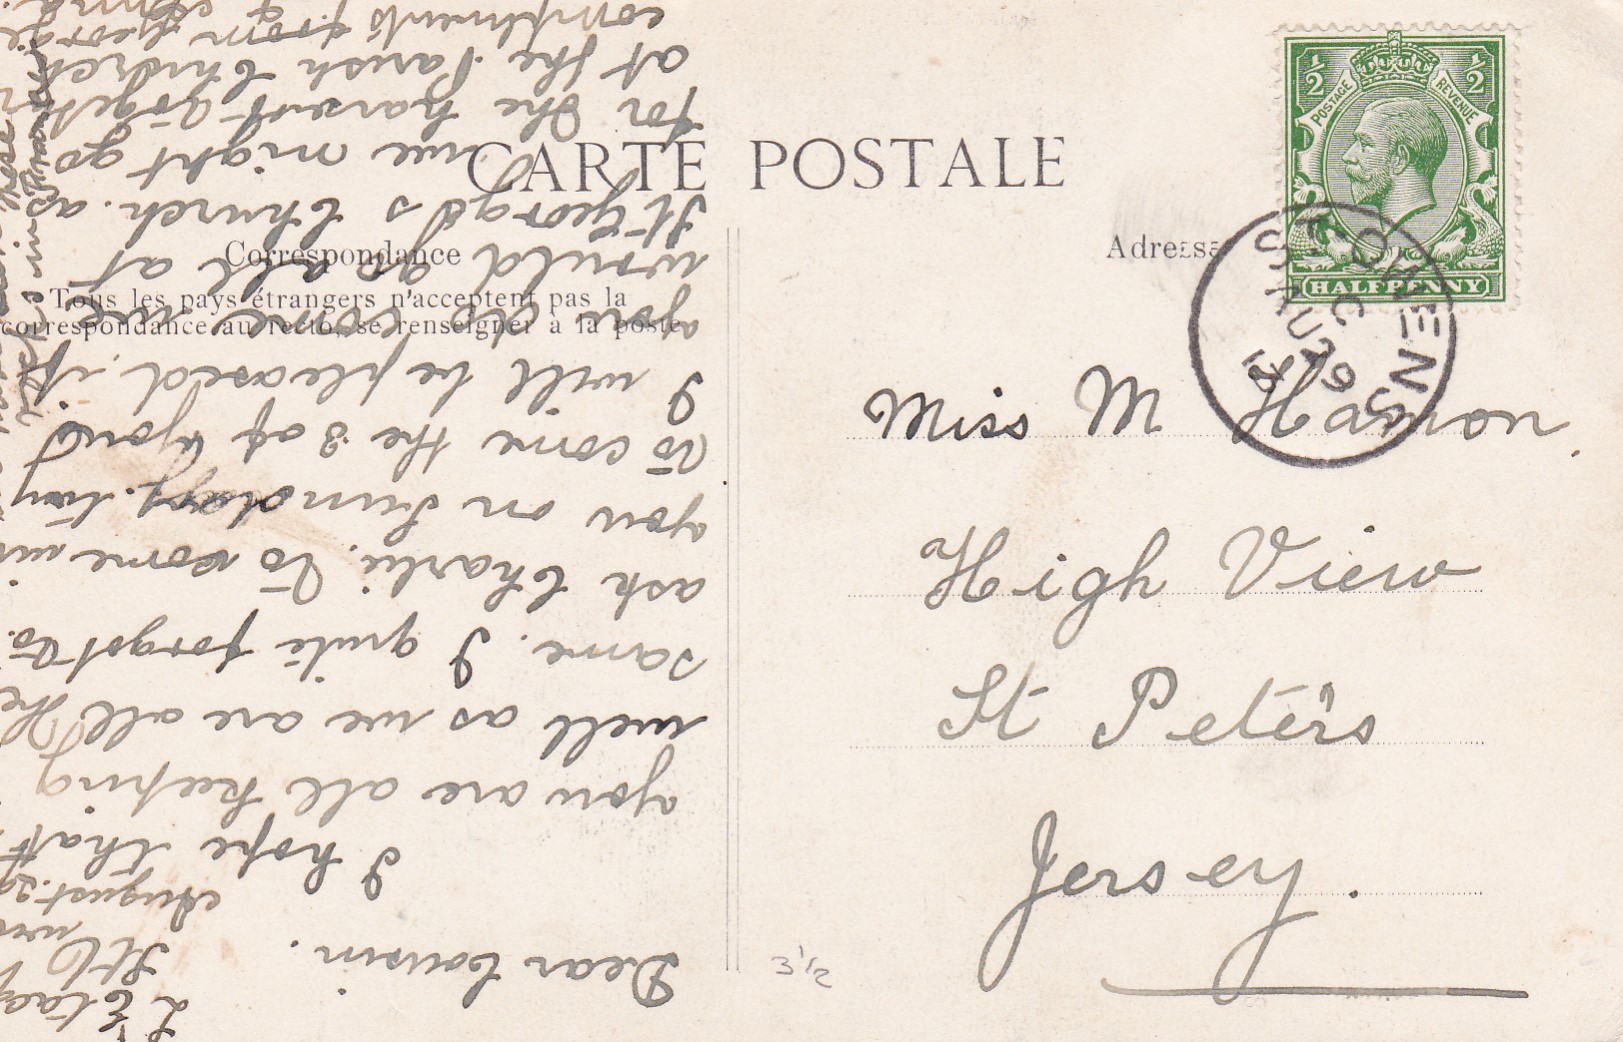 CARTE POSTALE
Correspondance
Tous les pays étrangers n'acceptent pas la
correspondance au recto, se renseigner à la poste
Adresse
½ ½
POSTAGE REVENUE
HALFPENNY
ST OWENS
C
AU 29
13
Miss M Hamon.
High View
St Peters
Jersey.
3/2
L'Etacq
St
August. 29
Dear Cousin.
I hope that
you are all keeping
well as we are all the
same. I quite forgot to.
ask Charlie. To come
you on Sunday. try
To come the 3 of
I will be pleased. if
you do come we
would go all at
St George's Church. as
we might go
for the harvest
at the Parish Church
compliments from George